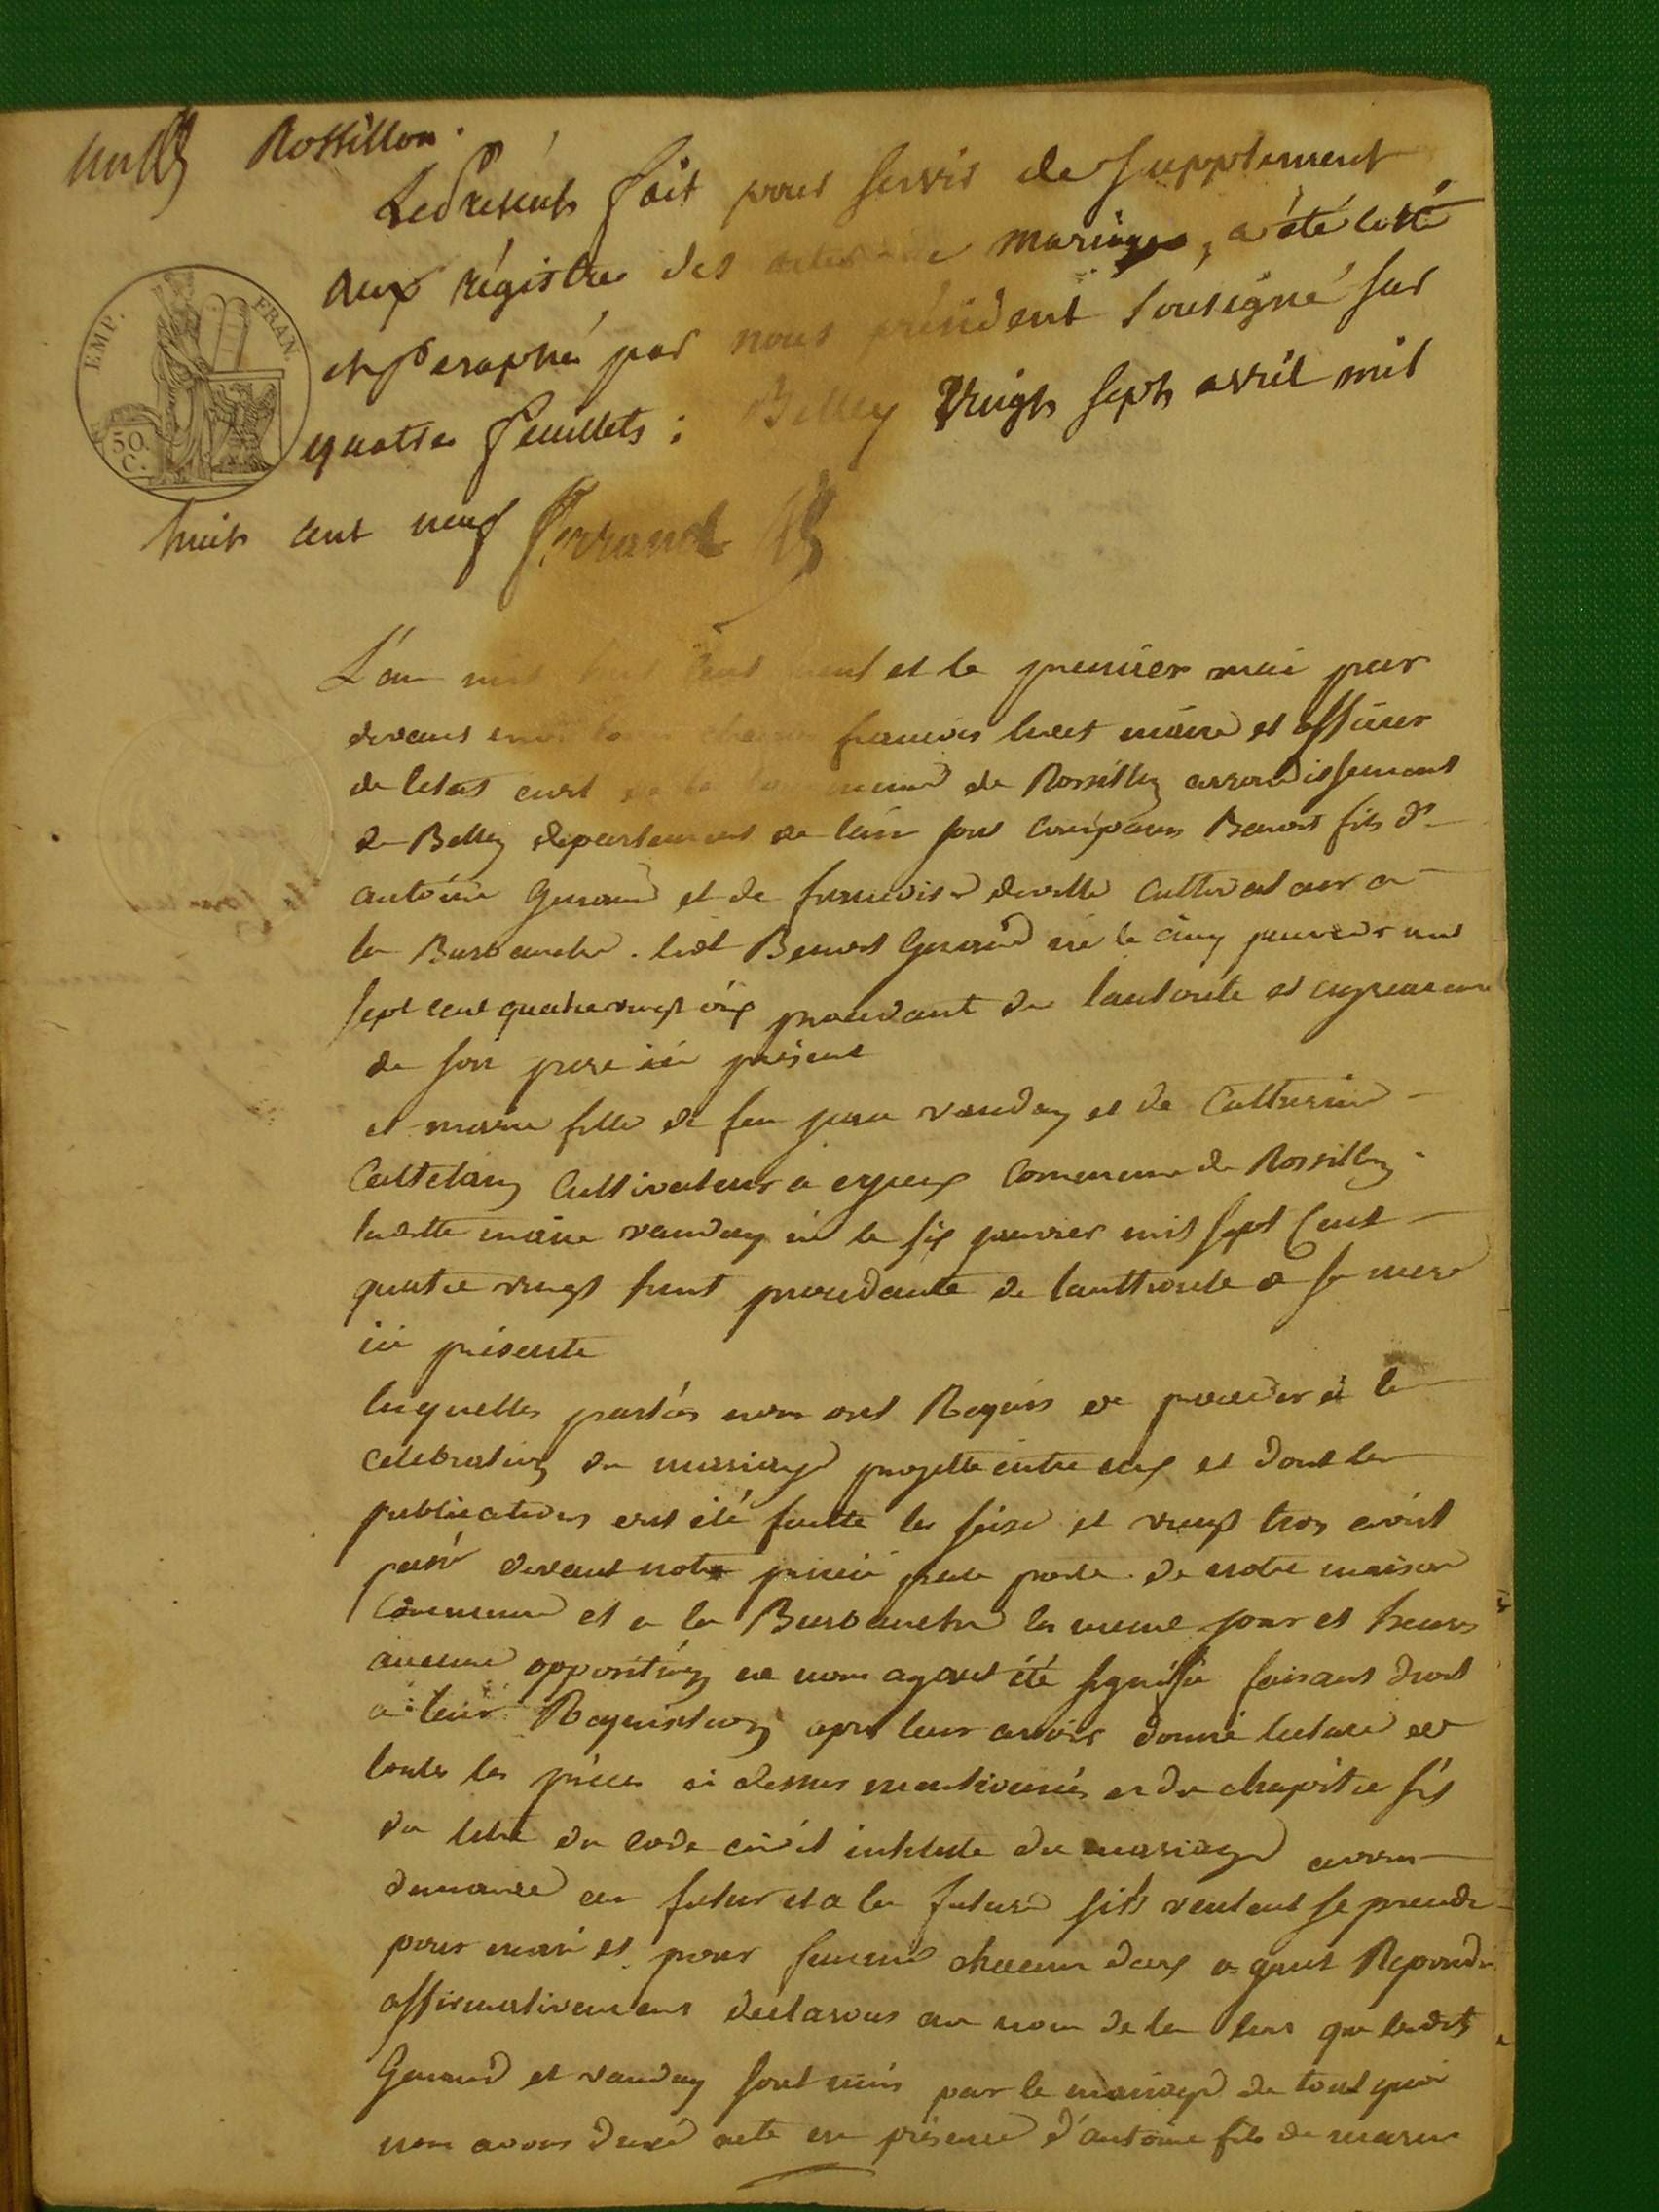 Rossillon.
Le Présent fait pour servir de supplement
aux régistres des actes de mariages, a été cotté
et Peraphé par nous président soussigné sur
quatre feuillets; Belley Vingt sept avril mil
huit cent neuf Ferrand
EMP. FRAN.
50 C.
L'an mil huit cent neuf et le premier mai par
devant françois maire et officier
de letat civil de la commune de Rossillon arrondissement
de Belley departement de lain sont comparus Benoit fils de
antoine et de francoise deville cultivateur a
la Burbanche. ledt Benoit né le cinq janvier mil
sept cent quatre vingt procedant de lautorité et
de son pere ici présent
et marie fille de feu vauday et de Catherine
Cattelany Cultivateurs a Commune de Rossillon.
ladtte marie vauday né le six janvier mil sept Cent
quatre vingt huit procedante de lautthorité de sa mere
ici présente
lesquelles parties nous ont Requis de proceder a la
celebration du mariage projetté entre eux et dont les
publications ont été faitte les seize et vingt trois avril
passé devant notre porte de notre maison
Commune et a la Burbanche les meme jour et heures
aucune opposition ne nous ayant été signifié faisant droit
a leur Requisition apres leur avoir donné lecture de
toutes les pièces ci dessus mentionnés et du chapitre six
du titre du code civil intitulé du mariage avons
demandé au futur et a la future sils veulent se prendre
pour mari et pour femme chacun deux ayant Repondu
affirmativement declarons au nom de la loi que lesdits
et vauday sont unis par le mariage de tout quoi
nous avons dressé acte en présence d'antoine fils de